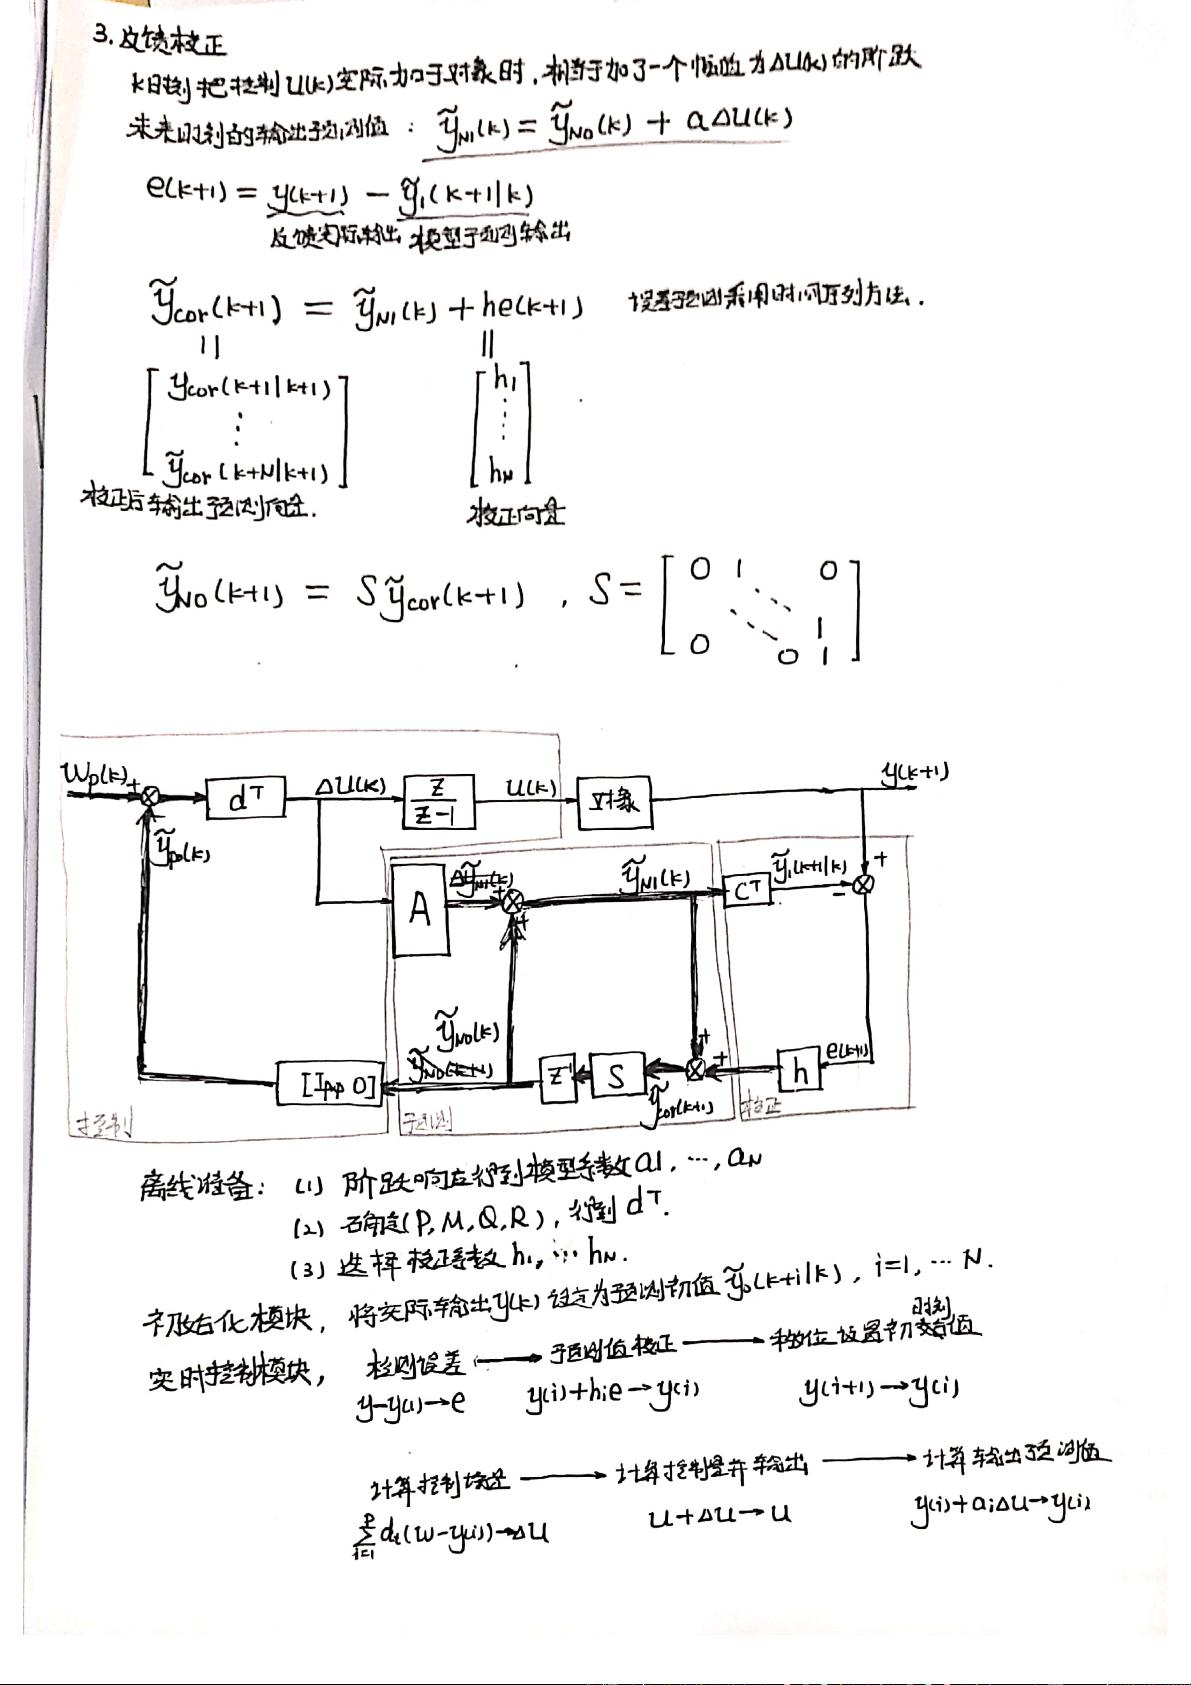 3. 反馈校正
k时刻把控制u(k)实际加于对象时，相当于加了一个幅值为Δu(k)的阶跃
未来时刻的输出预测值： ỹN1(k) = ỹN0(k) + aΔu(k)
e(k+1) = y(k+1) − ỹ1(k+1|k)
反馈实际输出 模型预测输出
ỹcor(k+1) = ỹN1(k) + he(k+1) 误差预测采用时间序列方法.
|| ||
[ ycor(k+1|k+1) ] [ h1 ]
⋮ ⋮
[ ỹcor(k+N|k+1) ] [ hN ]
校正后输出预测向量. 校正向量
ỹN0(k+1) = Sỹcor(k+1) , S = [ 0 1 0
1
0 0 1 ]
Wp(k) + dᵀ Δu(k) z/(z-1) u(k) 对象 y(k+1)
−
ỹp0(k)
A ΔỹN1(k) + + ỹN1(k) Cᵀ ỹ1(k+1|k) − +
ỹN0(k)
ỹN0(k+1)
[Ipxp 0] z⁻¹ S ỹcor(k+1) + + h e(k+1)
控制 预测 校正
离线准备： (1) 阶跃响应得到模型系数a1, ⋯, aN
(2) 确定(P, M, Q, R), 得到 dᵀ.
(3) 选择校正系数 h1, ⋯ hN.
初始化模块, 将实际输出y(k)设定为预测初值ỹ0(k+i|k), i=1, ⋯ N.
实时控制模块, 检测误差 → 预测值校正 → 移位设置初始值
时刻
y−y(1)→e y(i)+hie→y(i) y(i+1)→y(i)
计算控制增量 → 计算控制量并输出 → 计算输出预测值
∑ᵖᵢ₌₁ di(w−y(i))→Δu u+Δu→u y(i)+aiΔu→y(i)